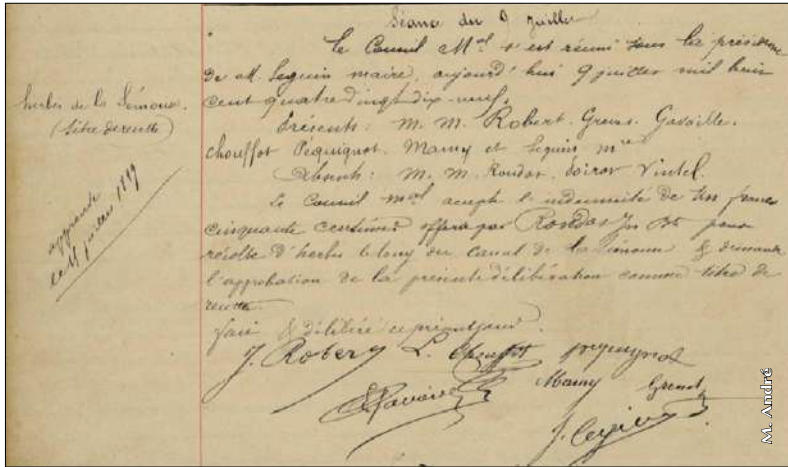 Séance du 9 juillet
Le Conseil Mal s'est réuni sous la présidence
de M. Seguin maire, aujourd'hui 9 juillet mil huit
cent quatre vingt dix-neuf.
Présents: M. M. Robert. Gavoille.
Chouffot Péquignot. Mamy et Seguin mre
Absents: M. M. Roudot. Vintel.
Le Conseil mal accepte l'indemnité de francs
cinquante centimes offerte par pour
récolte d'herbes le long du canal de la Sémoure & demande
l'approbation de la présente délibération comme titre de
recette.
Fait & délibéré ce présent jour.
J. Robert L. Chouffot péquignot
Mamy
herbes de la Sémoure.
(titre de recette)
juillet 1899
M. André